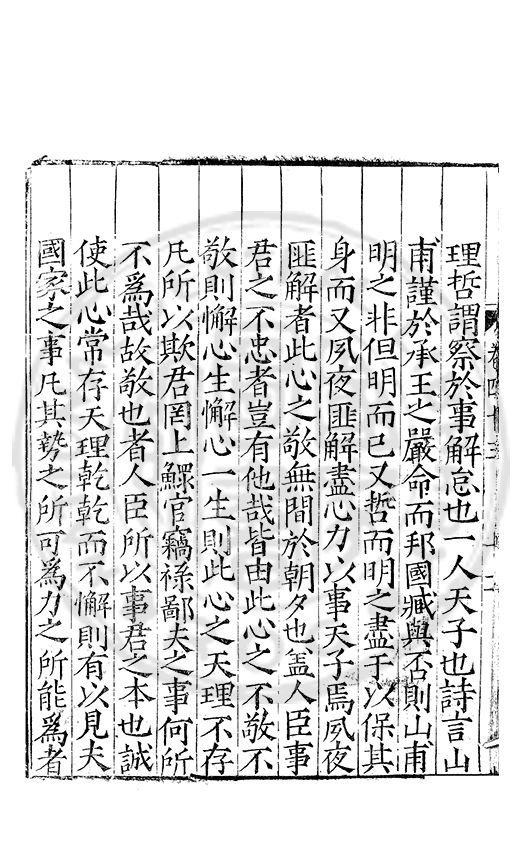 理哲謂察於事解怠也一人天子也詩言山
甫謹於承王之嚴命而邦國臧與否則山甫
明之非但明而已又哲而明之盡于以保其
身而又夙夜匪解盡心力以事天子焉夙夜
匪解者此心之敬無間於朝夕也盖人臣事
君之不忠者豈有他哉皆由此心之不敬不
敬則懈心生懈心一生則此心之天理不存
凡所以欺君罔上鰥官竊祿鄙夫之事何所
不爲哉故敬也者人臣所以事君之本也誠
使此心常存天理乾乾而不懈則有以見夫
國家之事凡其勢之所可爲力之所能爲者